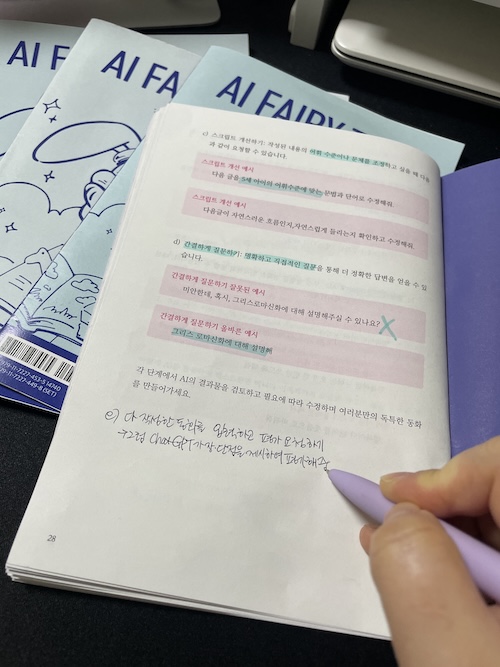 AI FA
AI FA
AI FAIRY T
c) 스크립트 개선하기: 작성된 내용의 어휘 수준이나 문체를 조정하고 싶을 때 다음
과 같이 요청할 수 있습니다.
스크립트 개선 예시
다음 글을 5세 아이의 어휘수준에 맞는 문법과 단어로 수정해줘
스크립트 개선 예시
다음글이 자연스러운 흐름인지,자연스럽게 들리는지 확인하고 수정해줘
d) 간결하게 질문하기: 명확하고 직접적인 질문을 통해 더 정확한 답변을 얻을 수 있
습니다.
간결하게 질문하기 잘못된 예시
미안한데, 혹시, 그리스로마신화에 대해 설명해주실 수 있나요?
X
간결하게 질문하기 올바른 예시
그리스 로마신화에 대해 설명해
각 단계에서 AI의 결과물을 검토하고 필요에 따라 수정하며 여러분만의 독특한 동화
를 만들어가세요.
e) 다 작성한 동화를 입력하고 평가 요청하기
→그럼 ChatGPT가 장단점을 제시하며 평가해줌
28
979-11-7227-453-5 14740
979-11-7227-449-8 (SET)